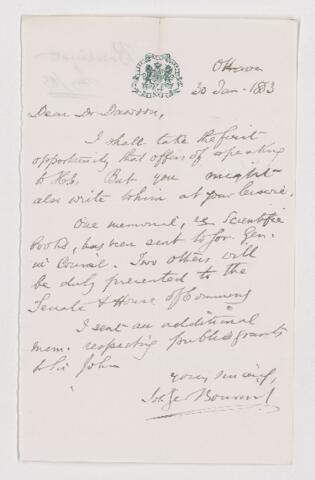 Ottawa
30 Jan. 1883
Dear Dr Dawson,
I shall take the first
opportunity that offers of speaking
to But you might
also write to him at your leisure.
One memorial, re Scientific
books, has been sent to Gov. Gen.
in Council. Two others will
be duly presented to the
Senate & House of Commons
I sent an additional
mem. respecting public grants
to Sir John
Yours sincerely,
Bourinot